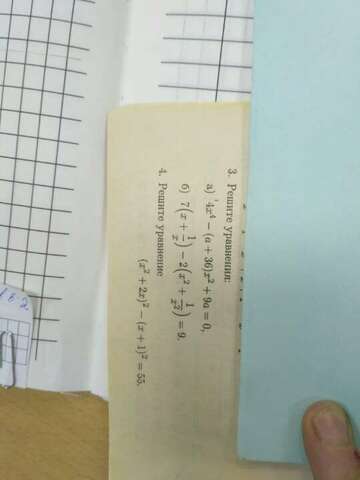 3. Решите уравнения:
а) 4x⁴ − (a + 36)x² + 9a = 0,
б) 7(x + 1/x) − 2(x² + 1/x²) = 9.
4. Решите уравнение
(x² + 2x)² − (x + 1)² = 55.